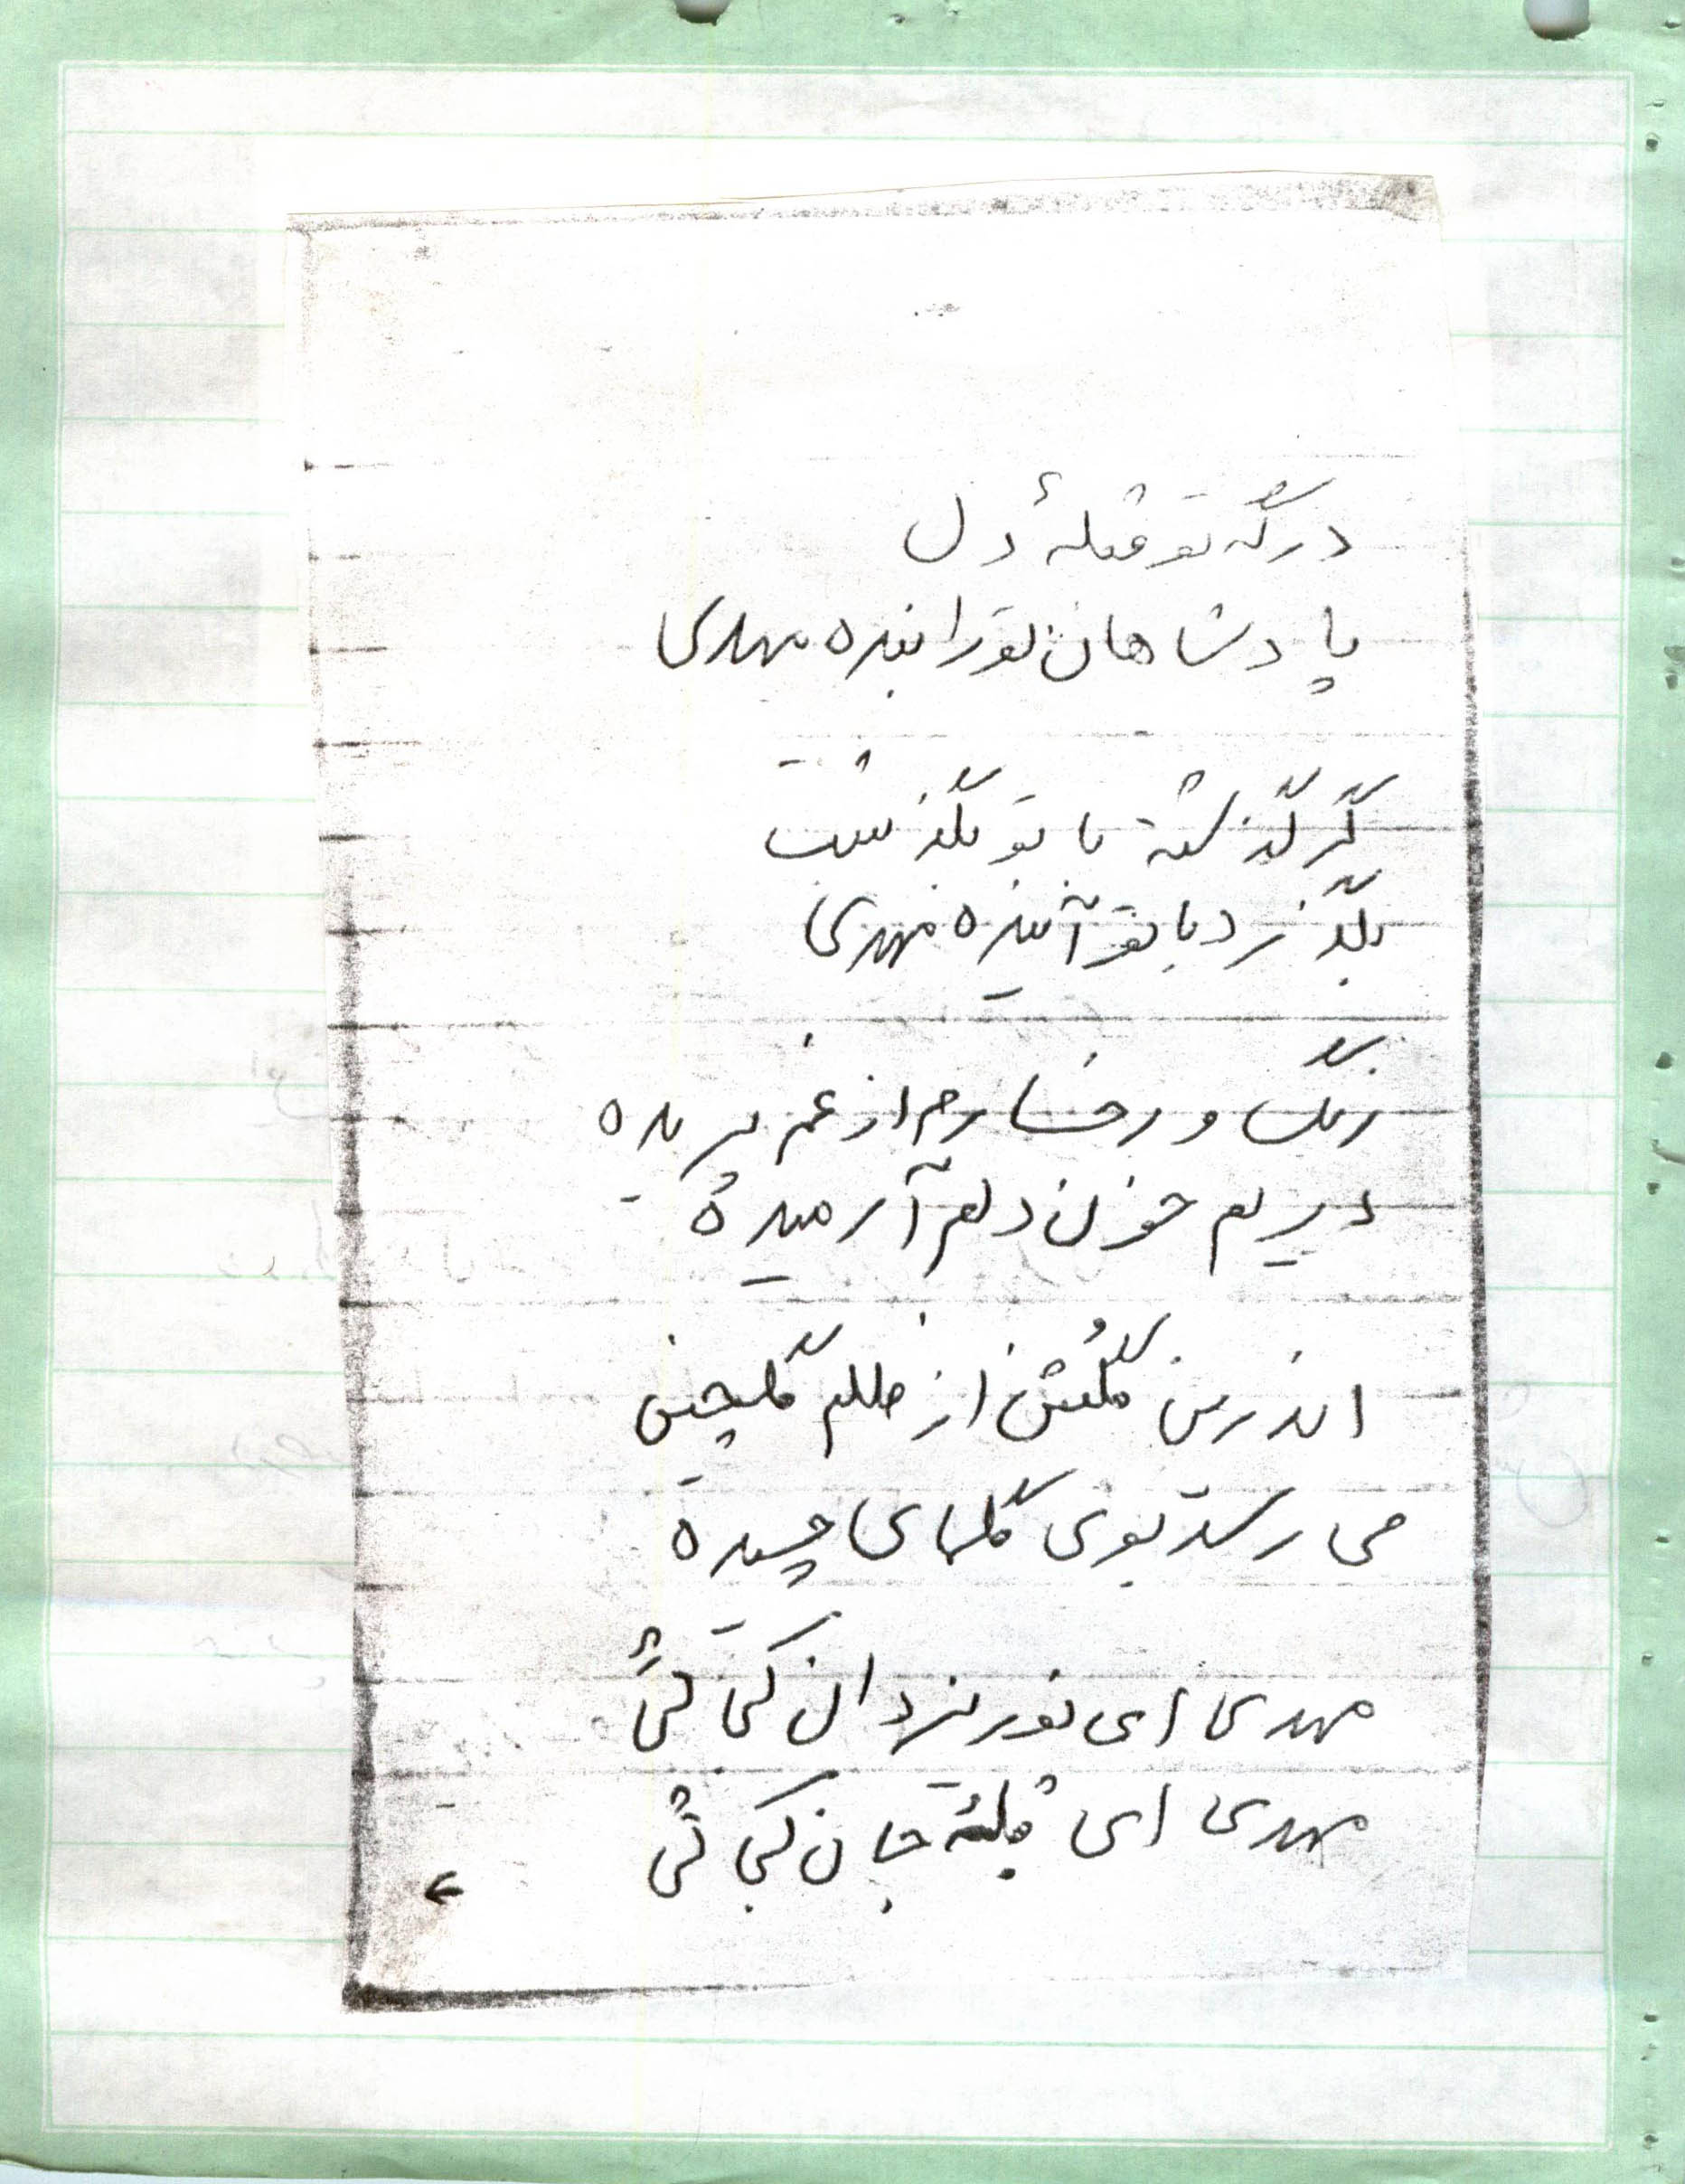 درگه تو قبلهٔ دل
پادشاهان تو را بنده مهدی
گر گذشته با تو بگذشت
بگذرد با تو آینده مهدی
رنگ و رخسارم از غم پریده
در برم خون دلم آرمیده
اندرین گلُشن از ظلم گلچین
می رسد بوی گلهای چیده
مهدی ای نور یزدان کجائی
مهدی ای قبلهٔ جان کجائی
←